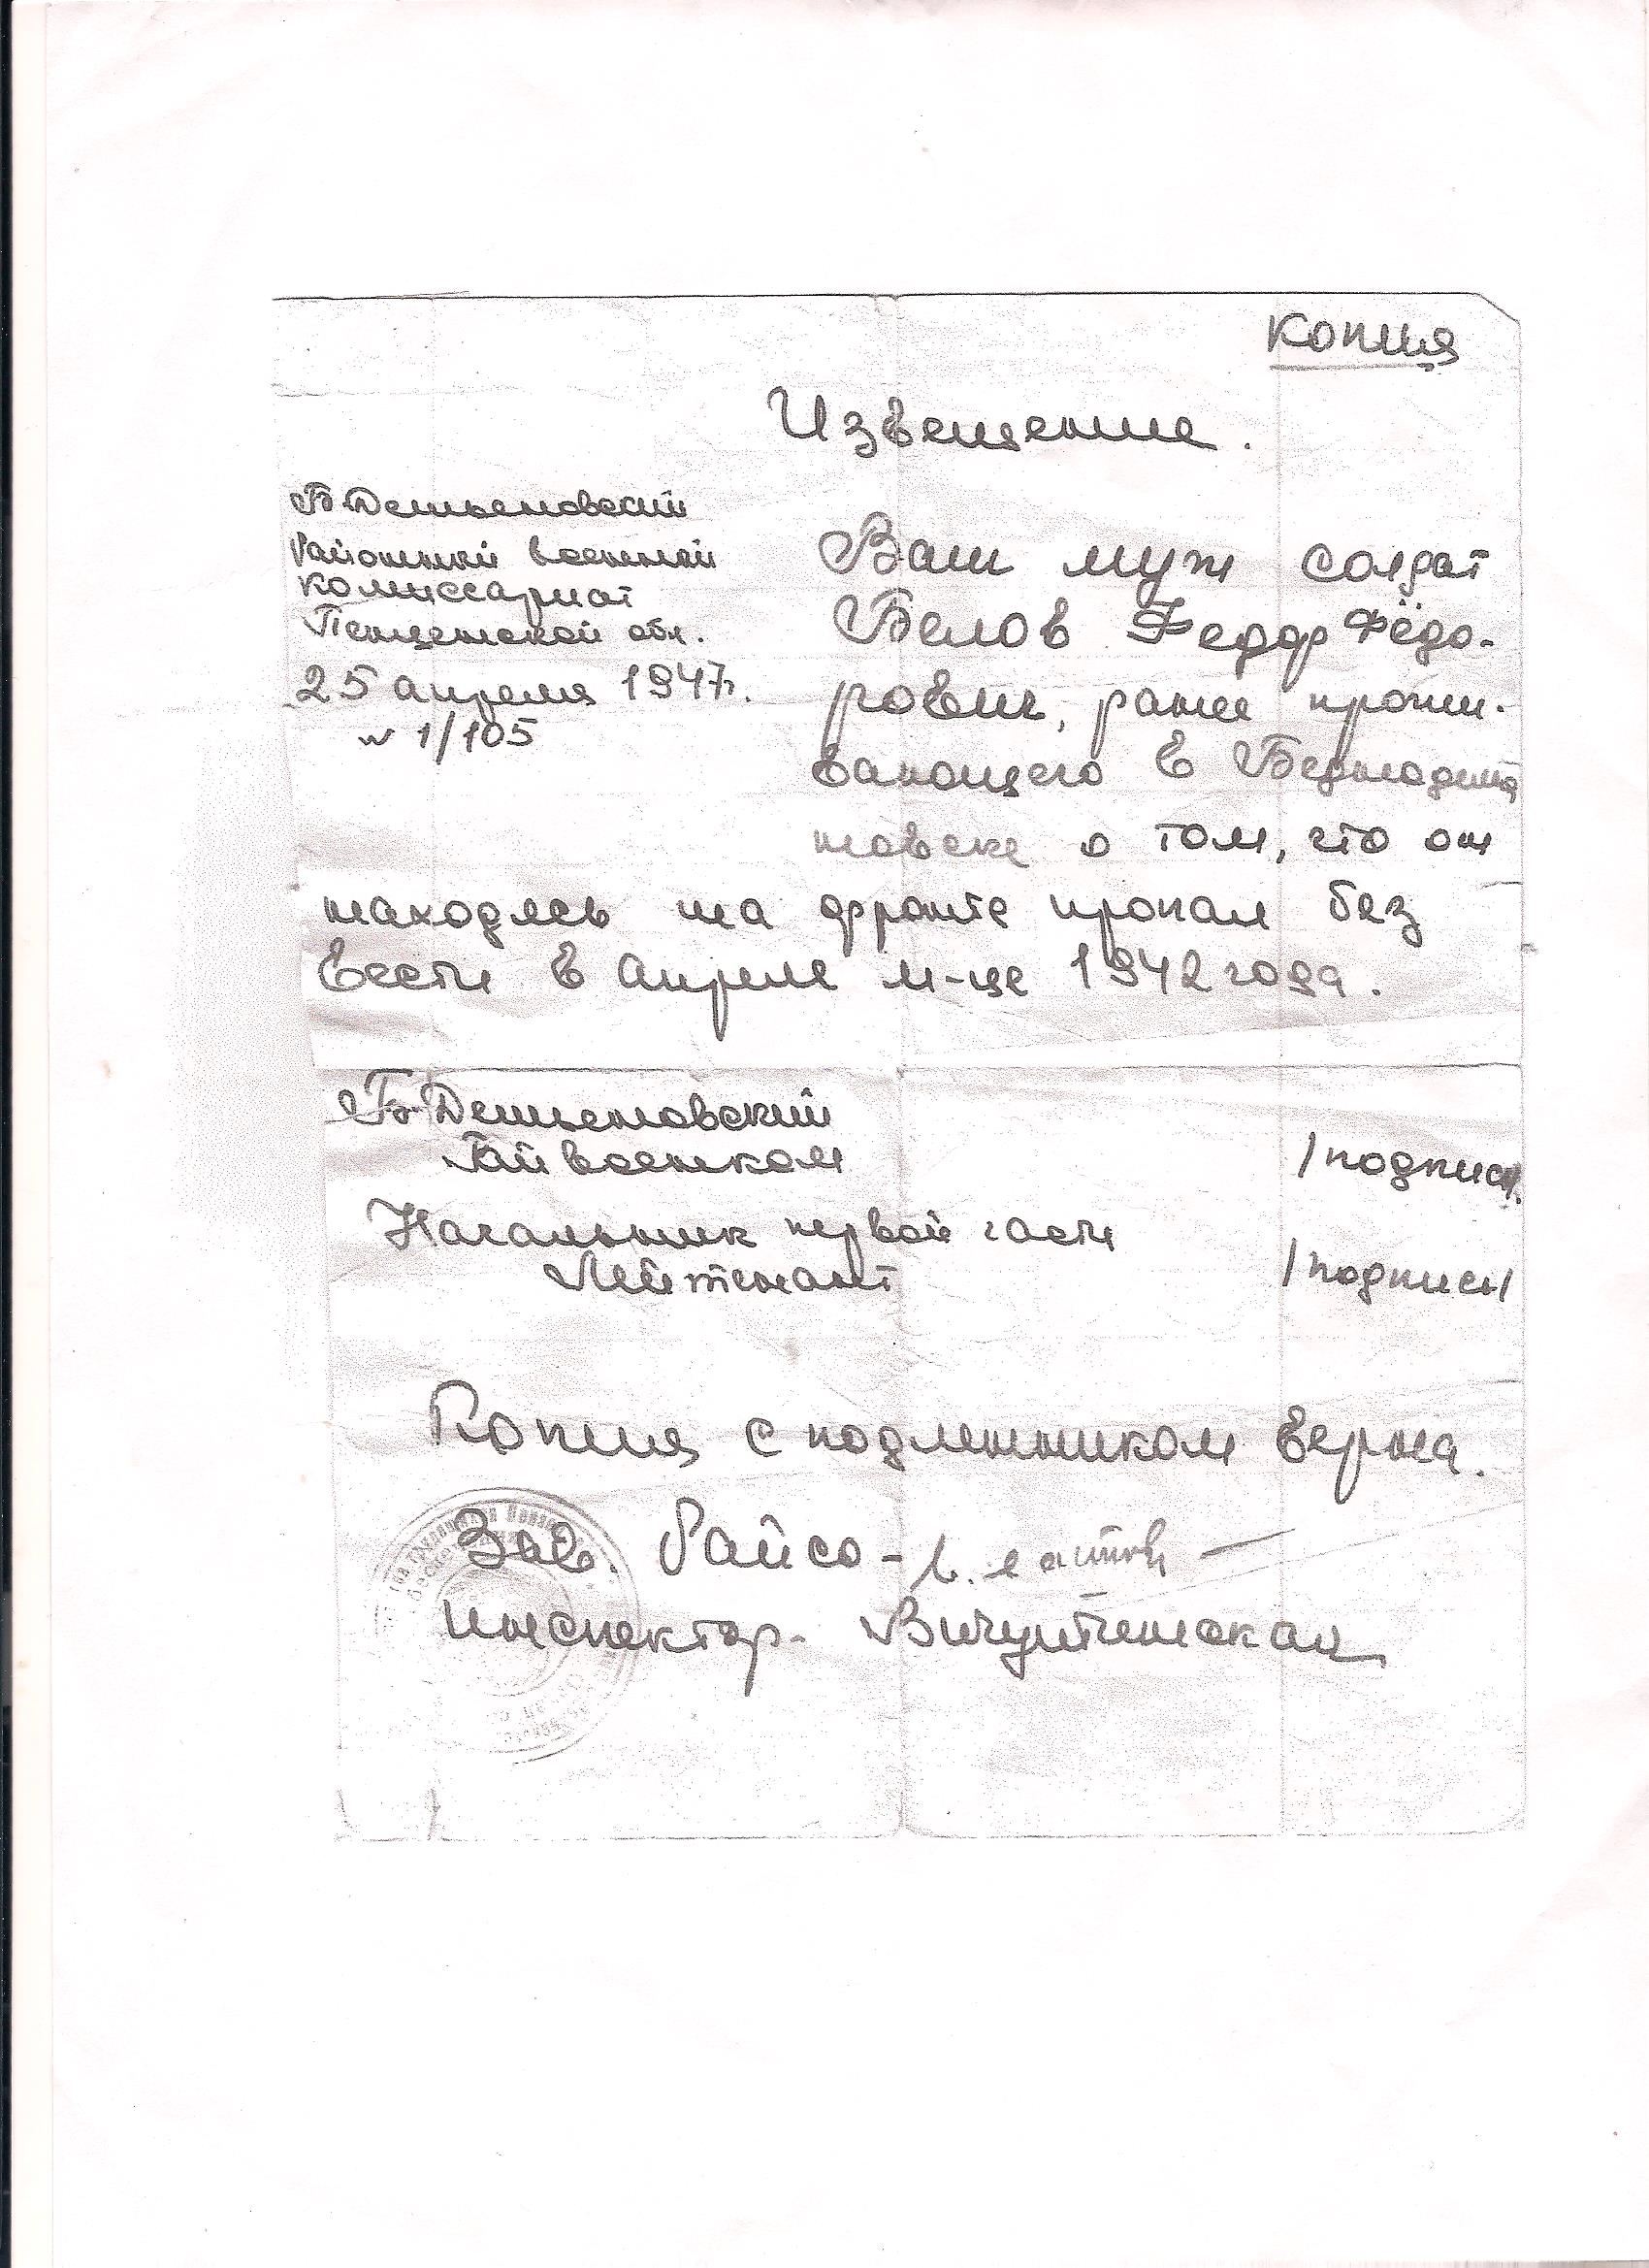 Копия
Извещение.
Б-Демьяновский
Районный военный
комиссариат
Пензенской обл.
25 апреля 1947г.
N 1/105
Ваш муж солдат
Белов Федор Фёдо-
рович, ранее прожи-
вающего в
о том, что он
находясь на фронте пропал без
вести в апреле м-це 1942 года.
Б-Демьяновский
Райвоенком /подпись
Начальник первой части
Лейтенант /подпись/
Копия с подлинником верна.
Зав. Райсо -
инспектор -